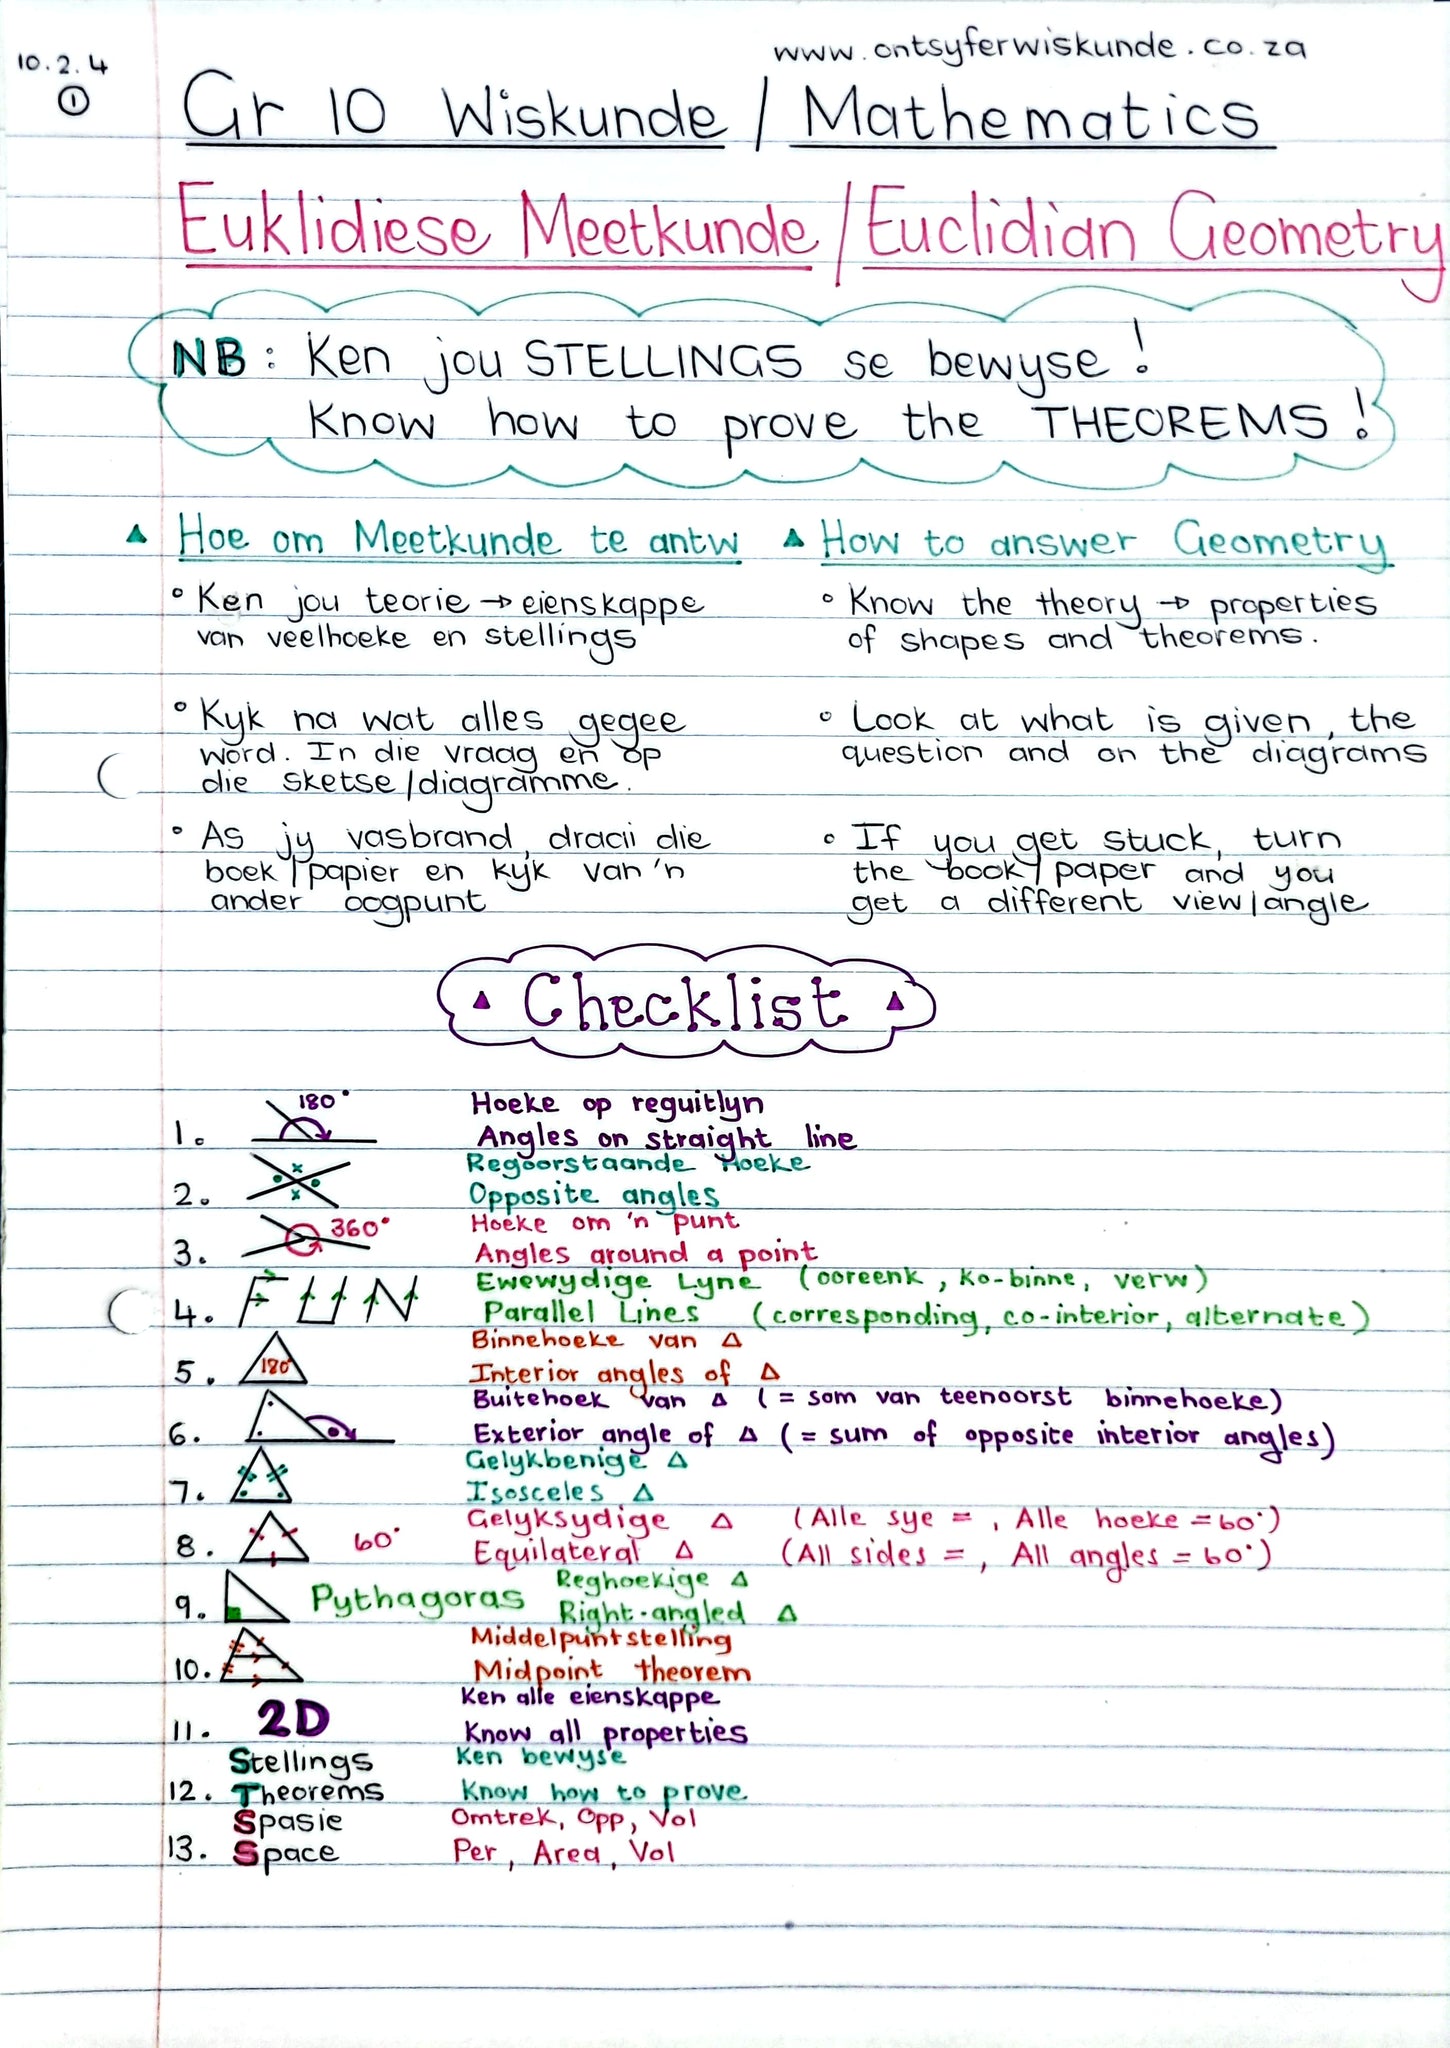 www.ontsyferwiskunde.co.za
10.2.4
①
Gr 10 Wiskunde / Mathematics
Euklidiese Meetkunde / Euclidian Geometry
NB: Ken jou STELLINGS se bewyse!
Know how to prove the THEOREMS!
▲ Hoe om Meetkunde te antw
° Ken jou teorie → eienskappe
van veelhoeke en stellings
° Kyk na wat alles gegee
word. In die vraag en op
die sketse/diagramme.
° As jy vasbrand, draai die
boek/papier en kyk van 'n
ander oogpunt
▲ How to answer Geometry
° Know the theory → properties
of shapes and theorems.
° Look at what is given, the
question and on the diagrams
° If you get stuck, turn
the book/paper and you
get a different view/angle
▲ Checklist ▲
180° Hoeke op reguitlyn
1. Angles on straight line
Regoorstaande Hoeke
2. Opposite angles
360° Hoeke om 'n punt
3. Angles around a point
Ewewydige Lyne (ooreenk, ko-binne, verw)
4. FUN Parallel Lines (corresponding, co-interior, alternate)
Binnehoeke van Δ
5. 180° Interior angles of Δ
Buitehoek van Δ (= som van teenoorst binnehoeke)
6. Exterior angle of Δ (= sum of opposite interior angles)
Gelykbenige Δ
7. Isosceles Δ
Gelyksydige Δ (Alle sye = , Alle hoeke = 60°)
8. 60° Equilateral Δ (All sides = , All angles = 60°)
Reghoekige Δ
9. Pythagoras Right-angled Δ
Middelpuntstelling
10. Midpoint theorem
Ken alle eienskappe
11. 2D Know all properties
Stellings Ken bewyse
12. Theorems Know how to prove
Spasie Omtrek, Opp, Vol
13. Space Per, Area, Vol